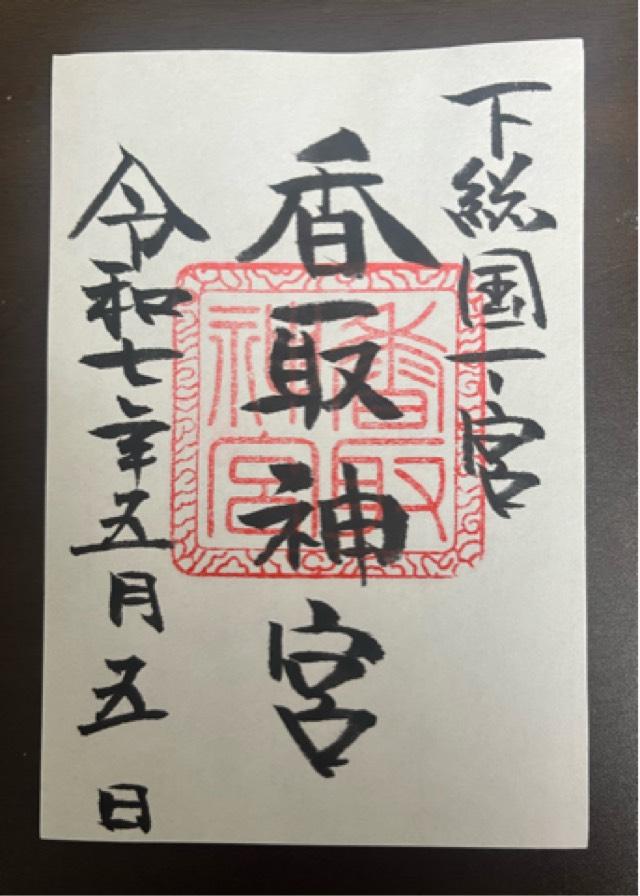 下総国一宮
香取神宮
香取神宮
令和七年五月五日